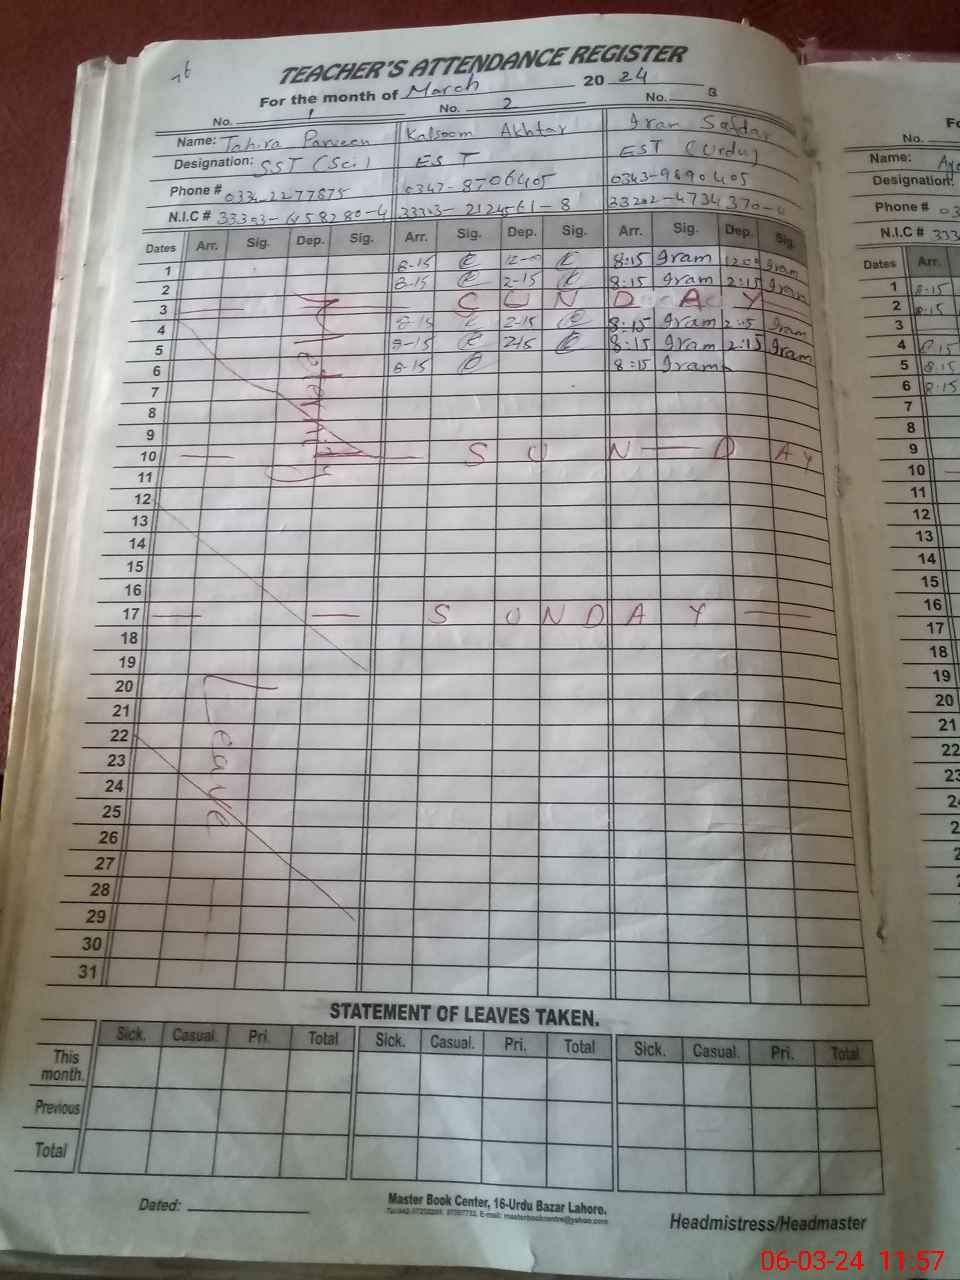 TEACHER'S ATTENDANCE REGISTER
For the month of March 2024
No. 1 No. 2 No. 3
Name: Tahira Parveen Kalsoom Akhtar Iram Safdar
Designation: SST (Sci) EST EST (Urdu)
Phone # 0334-2277875 0347-8706405 0343-9690405
N.I.C # 33303- 33303-2124561-8 33202-4734370-
Dates Arr. Sig. Dep. Sig. Arr. Sig. Dep. Sig. Arr. Sig. Dep. Sig.
1 8-15 12-00 8:15 Iram 12:00 Iram
2 8-15 2-15 8:15 Iram 2:15 Iram
3 SUNDAY
4 8-15 2-15 8:15 Iram 2:15 Iram
5 8-15 2-15 8:15 Iram 2:15 Iram
6 8-15 8:15 Iram
7
8
9
10 SUNDAY
11
12
13
14
15
16
17 SUNDAY
18
19
20
21
22
23
24
25
26
27
28
29
30
31
Maternity
Leave
STATEMENT OF LEAVES TAKEN.
Sick. Casual. Pri. Total Sick. Casual. Pri. Total Sick. Casual. Pri. Total
This month.
Previous
Total
Dated:
Master Book Center, 16-Urdu Bazar Lahore.
Headmistress/Headmaster
No.
Name:
Designation:
Phone # 03
N.I.C # 333
Dates Arr.
1 8:15
2 8:15
3
4 8:15
5 8:15
6 8:15
7
8
9
10
11
12
13
14
15
16
17
18
19
20
21
22
06-03-24 11:57